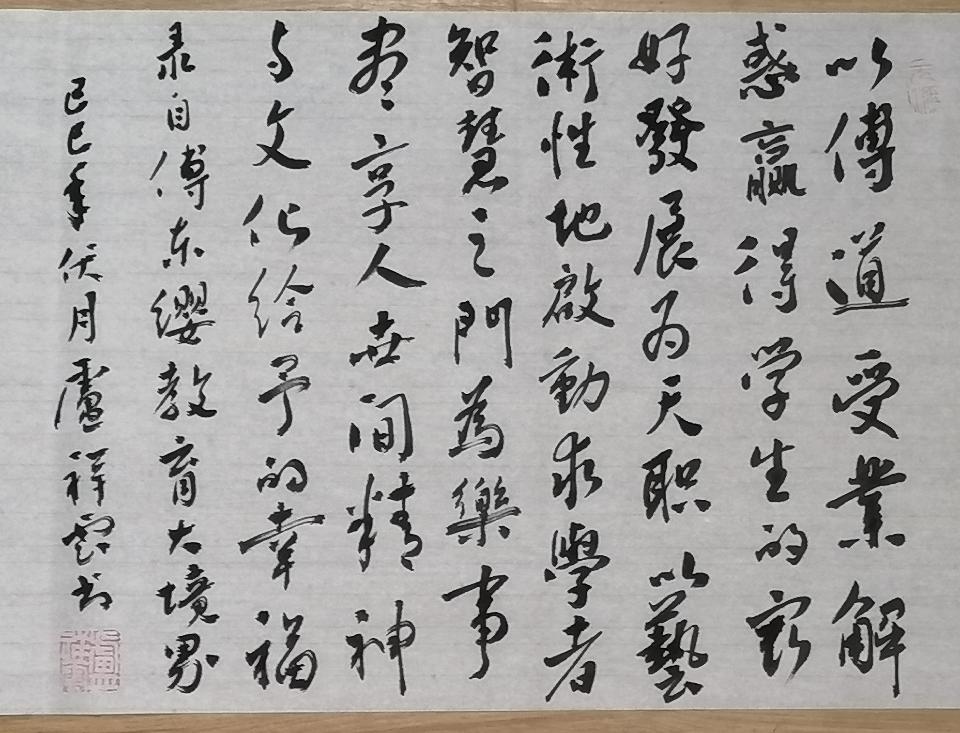 以傅道受業解
惑贏得学生的家
好發展为天职以藝
術性地啟動求學者
智慧之門為樂事
盡享人世间精神
与文化给予的幸福
录自傅东缨教育大境界
己巳年伏月盧祥雲书